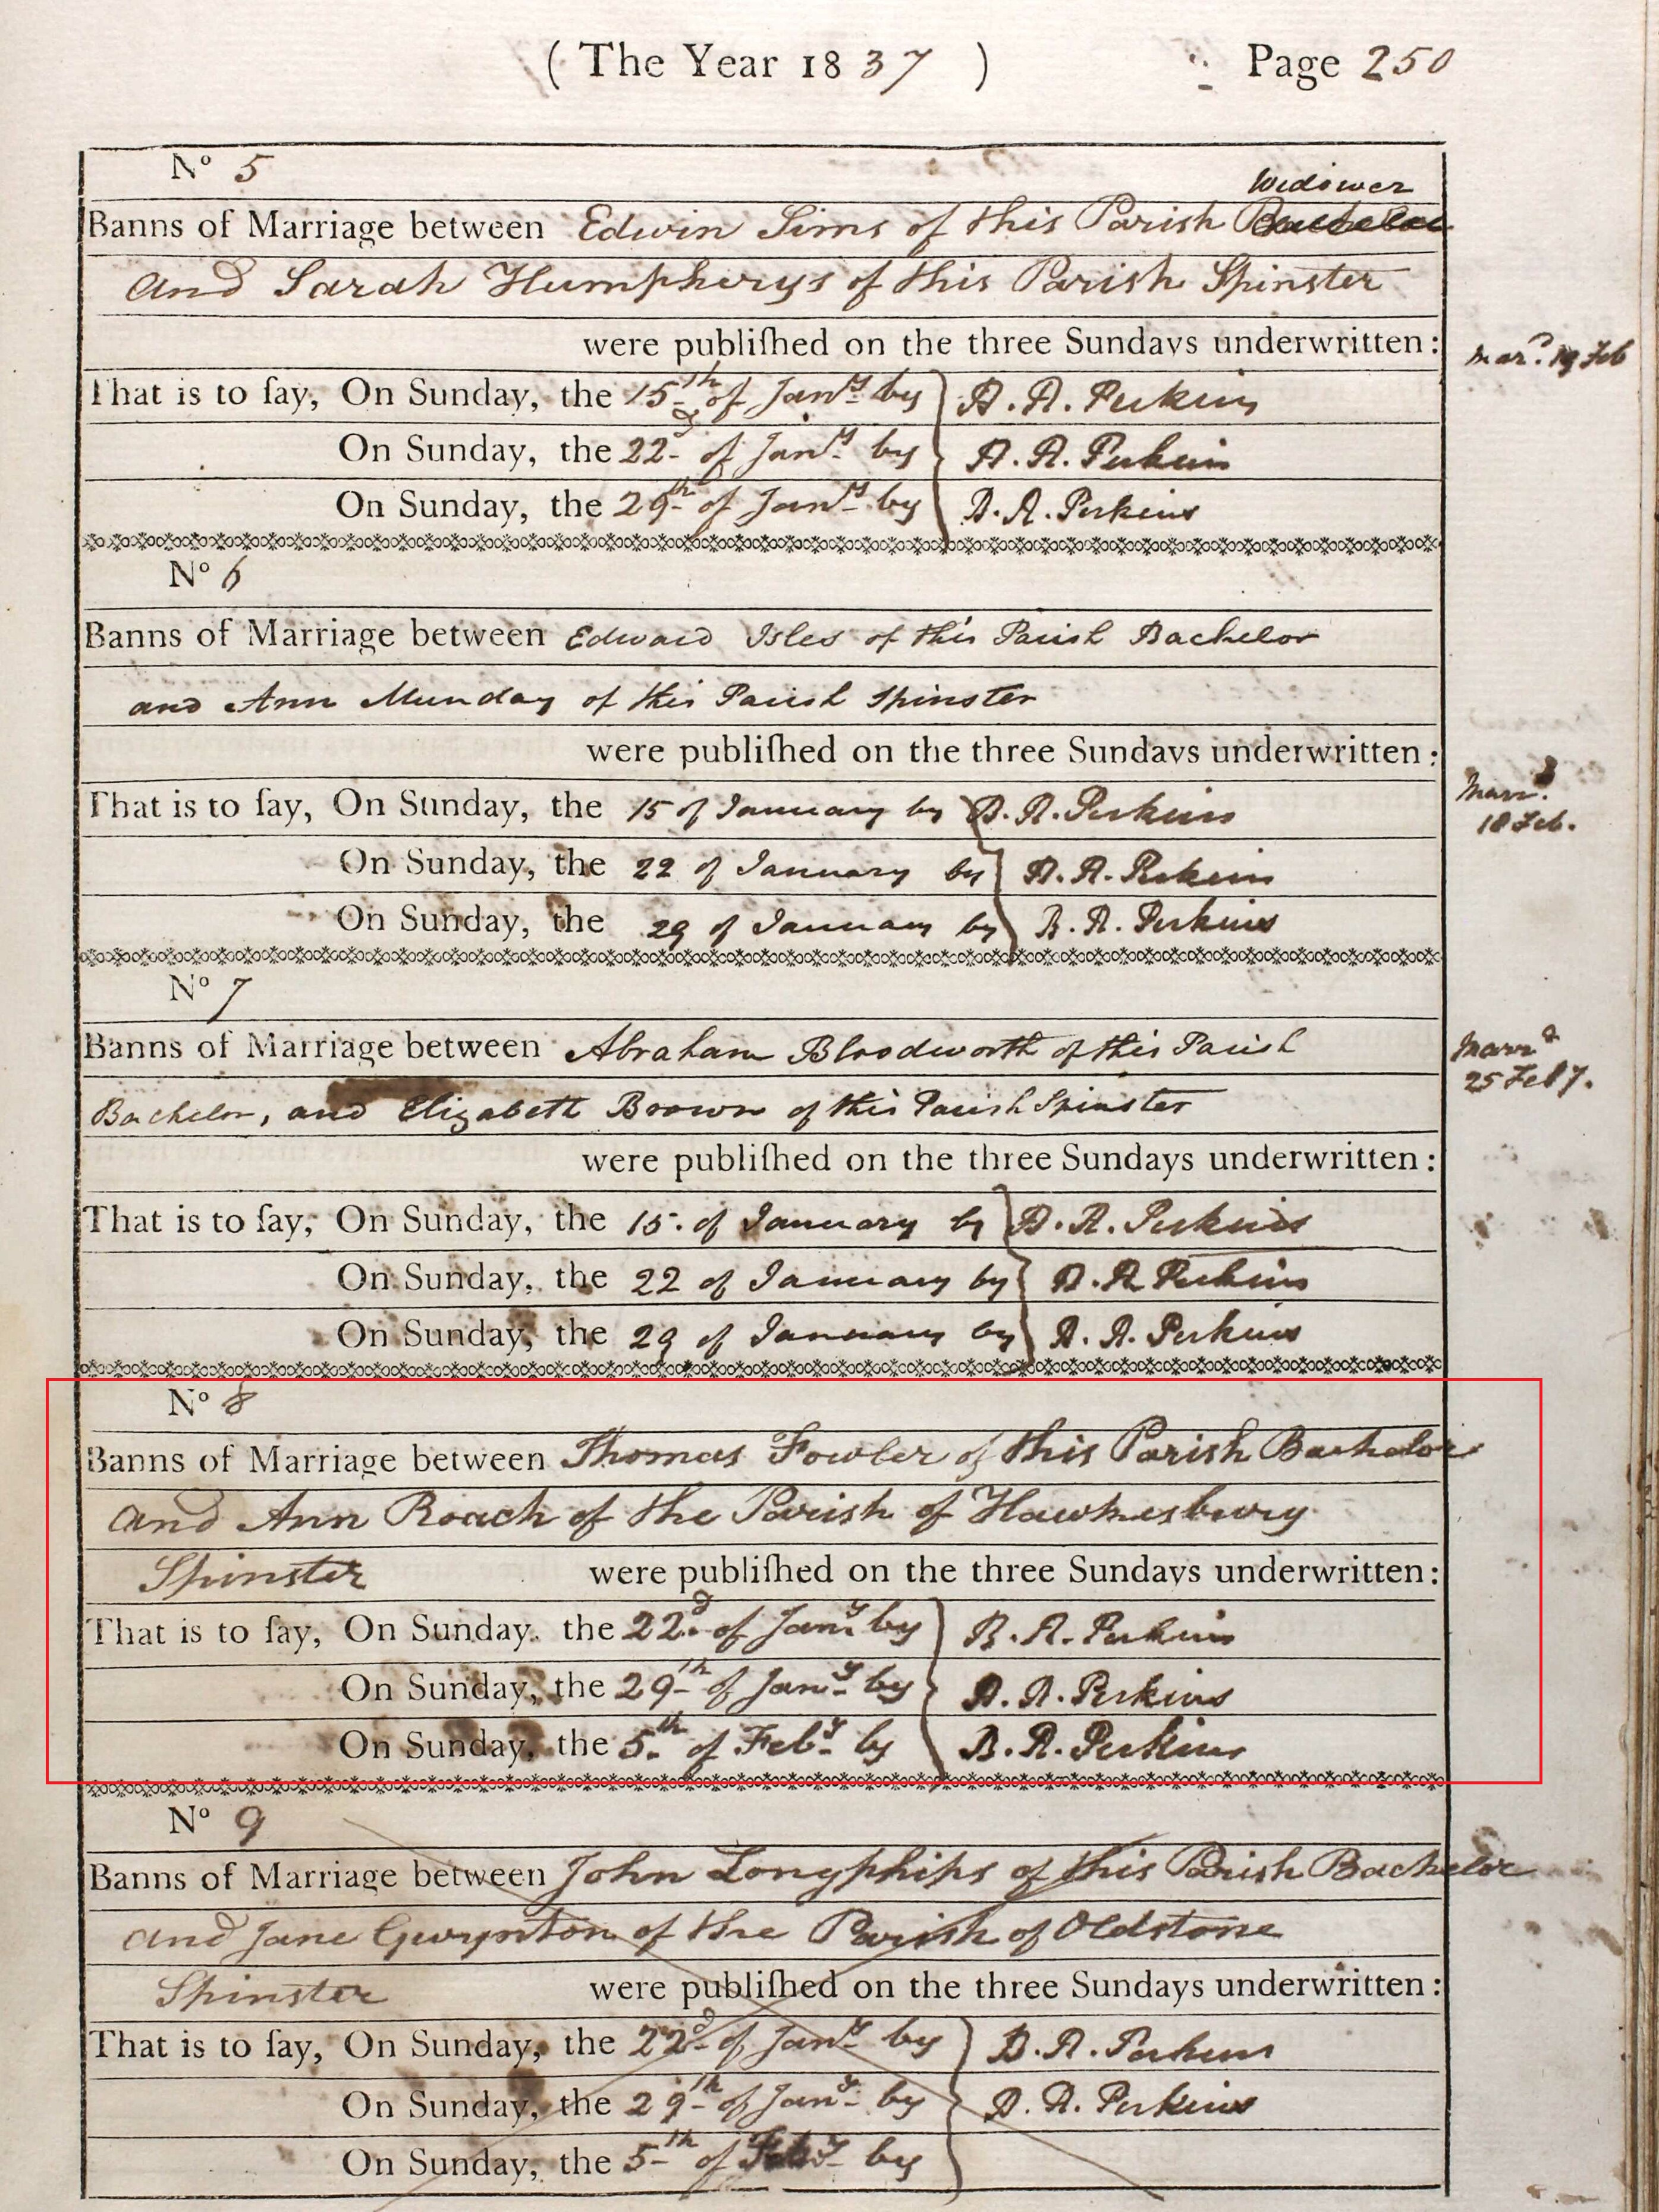 ( The Year 1837 ) Page 250
No 5
Widower
Banns of Marriage between Edwin Sims of this Parish Bachelor
and Sarah Humpherys of this Parish Spinster
were publiſhed on the three Sundays underwritten:
Mard. 19 Feb
That is to ſay, On Sunday, the 15th of Jany by B. R. Perkins
On Sunday, the 22d of Jany by B. R. Perkins
On Sunday, the 29th of Jany by B. R. Perkins
No 6
Banns of Marriage between Edward Isles of this Parish Bachelor
and Ann Munday of this Parish Spinster
were publiſhed on the three Sundays underwritten:
Marrd.
18 Feb.
That is to ſay, On Sunday, the 15 of January by B. R. Perkins
On Sunday, the 22 of January by B. R. Perkins
On Sunday, the 29 of January by B. R. Perkins
No 7
Banns of Marriage between Abraham Bloodworth of this Parish
Marrd
25 Feb 7.
Bachelor, and Elizabeth Brown of this Parish Spinster
were publiſhed on the three Sundays underwritten:
That is to ſay, On Sunday, the 15. of January by B. R. Perkins
On Sunday, the 22 of January by B. R. Perkins
On Sunday, the 29 of January by B. R. Perkins
No 8
Banns of Marriage between Thomas Fowler of this Parish Bachelor
and Ann Roach of the Parish of Hawkesbury
Spinster were publiſhed on the three Sundays underwritten:
That is to ſay, On Sunday, the 22d. of Jany by B. R. Perkins
On Sunday, the 29th of Jany by B. R. Perkins
On Sunday, the 5th of Feby by B. R. Perkins
No 9
Banns of Marriage between John Longphips of this Parish Bachelor
and Jane Gwynton of the Parish of Oldstone
Spinster were publiſhed on the three Sundays underwritten:
That is to ſay, On Sunday, the 22d of Jany by B. R. Perkins
On Sunday, the 29th of Jany by B. R. Perkins
On Sunday, the 5th of Feby by